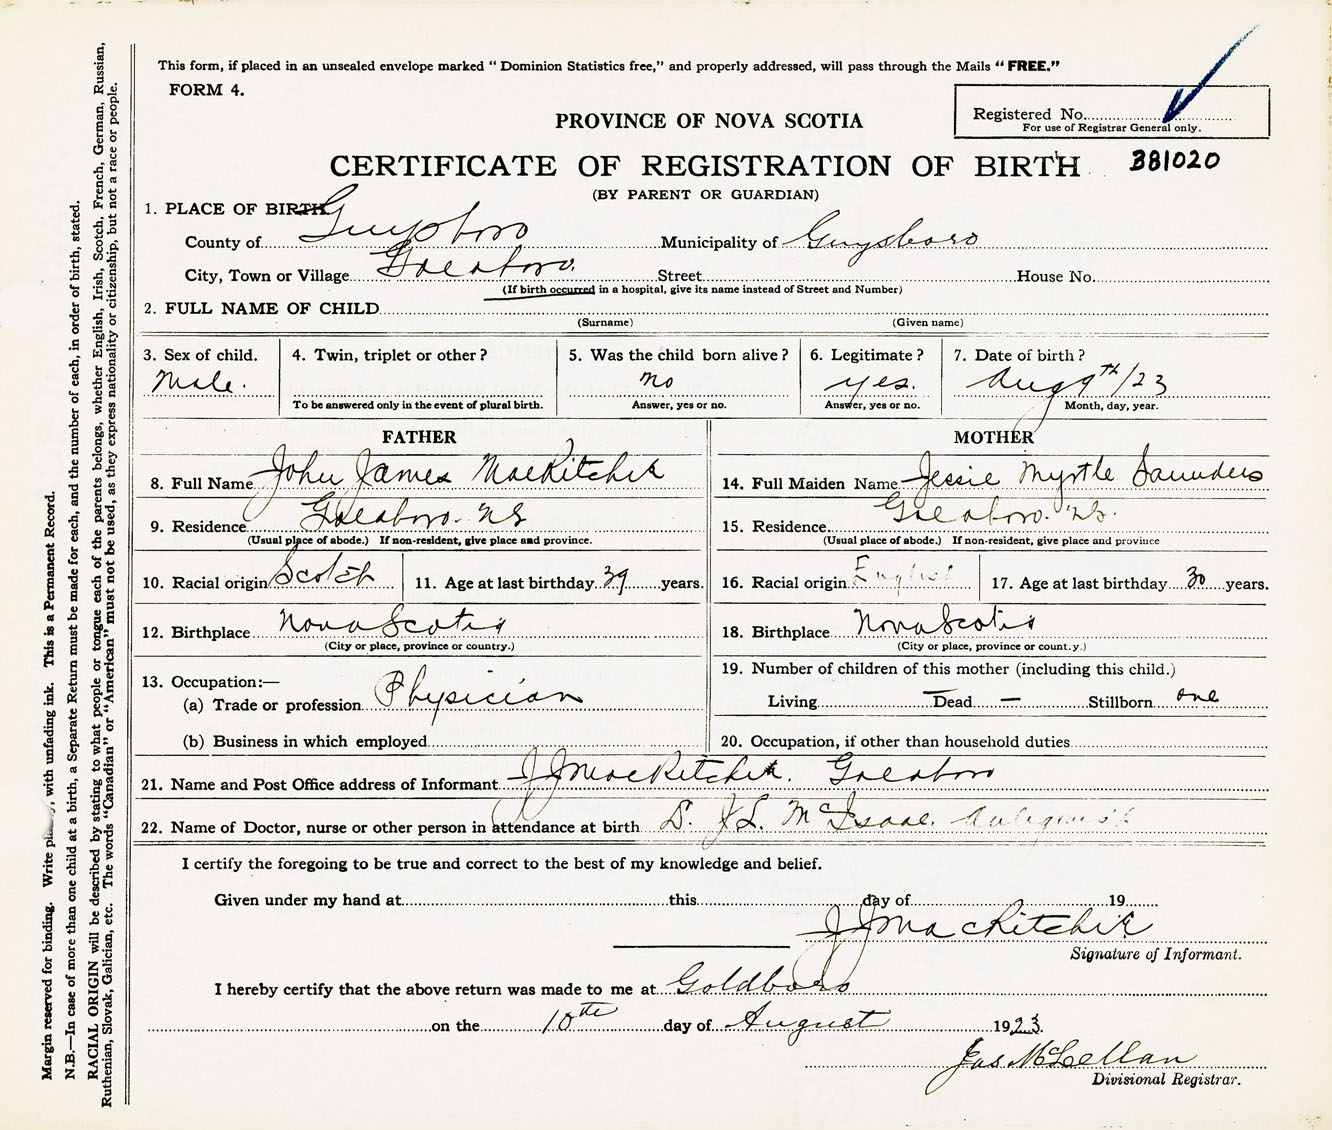 This form, if placed in an unsealed envelope marked “ Dominion Statistics free,” and properly addressed, will pass through the Mails “ FREE.”
FORM 4.
Registered No.
For use of Registrar General only.
PROVINCE OF NOVA SCOTIA
CERTIFICATE OF REGISTRATION OF BIRTH B81020
(BY PARENT OR GUARDIAN)
1. PLACE OF BIRTH
County of Guysboro Municipality of Guysboro
City, Town or Village Goldboro. Street House No.
(If birth occurred in a hospital, give its name instead of Street and Number)
2. FULL NAME OF CHILD
(Surname) (Given name)
3. Sex of child. 4. Twin, triplet or other ? 5. Was the child born alive ? 6. Legitimate ? 7. Date of birth ?
Male. no yes. Aug 9th/23
To be answered only in the event of plural birth. Answer, yes or no. Answer, yes or no. Month, day, year.
FATHER MOTHER
8. Full Name John James MacRitchie 14. Full Maiden Name Jessie Myrtle Saunders
9. Residence Goldboro. NS 15. Residence. Goldboro. NS.
(Usual place of abode.) If non-resident, give place and province. (Usual place of abode.) If non-resident, give place and province
10. Racial origin Scotch 11. Age at last birthday 39 years. 16. Racial origin English 17. Age at last birthday 30 years.
12. Birthplace Nova Scotia 18. Birthplace Nova Scotia
(City or place, province or country.) (City or place, province or count.y.)
19. Number of children of this mother (including this child.)
13. Occupation:—
(a) Trade or profession Physician Living — Dead — Stillborn one
(b) Business in which employed 20. Occupation, if other than household duties
21. Name and Post Office address of Informant J J MacRitchie. Goldboro
22. Name of Doctor, nurse or other person in attendance at birth McIsaac. Antigonish
I certify the foregoing to be true and correct to the best of my knowledge and belief.
Given under my hand at this day of 19
J J MacRitchie
Signature of Informant.
I hereby certify that the above return was made to me at Goldboro
on the 10th day of August 1923.
Jas McLellan
Divisional Registrar.
Margin reserved for binding. Write with unfading ink. This is a Permanent Record.
N.B.—In case of more than one child at a birth, a Separate Return must be made for each, and the number of each, in order of birth, stated.
RACIAL ORIGIN will be described by stating to what people or tongue each of the parents belongs, whether English, Irish, Scotch, French, German, Russian,
Ruthenian, Slovak, Galician, etc. The words “Canadian” or “American” must not be used, as they express nationality or citizenship, but not a race or people.